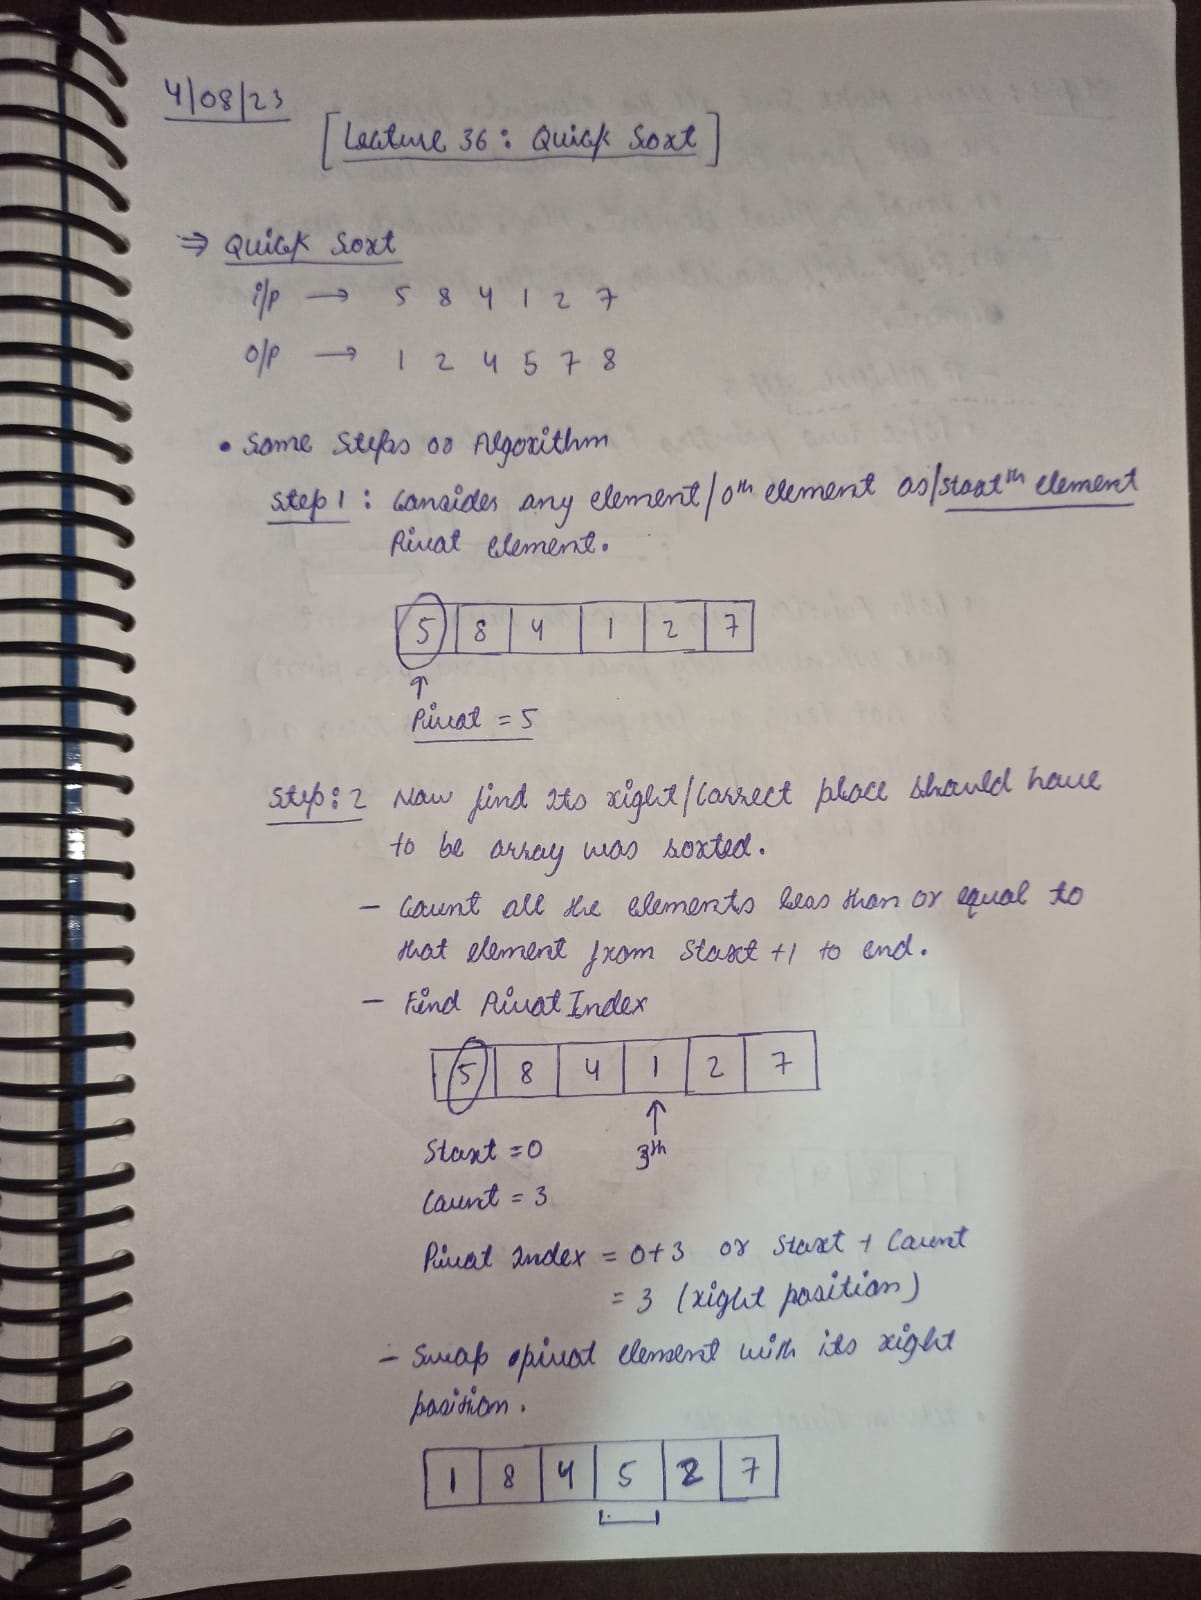 4/08/23
[Lecture 36: Quick Sort]
⇒ Quick Sort
i/p → 5 8 4 1 2 7
o/p → 1 2 4 5 7 8
• Some Steps or Algorithm
Step 1: Consider any element/0th element as/startth element
Pivot element.
5 8 4 1 2 7
↑
Pivot = 5
Step: 2 Now find its right/correct place should have
to be array was sorted.
- Count all the elements less than or equal to
that element from Start +1 to end.
- Find Pivot Index
5 8 4 1 2 7
↑
Start = 0 3th
Count = 3
Pivot Index = 0+3 or Start + Count
= 3 (right position)
- Swap pivot element with its right
position.
1 8 4 5 2 7